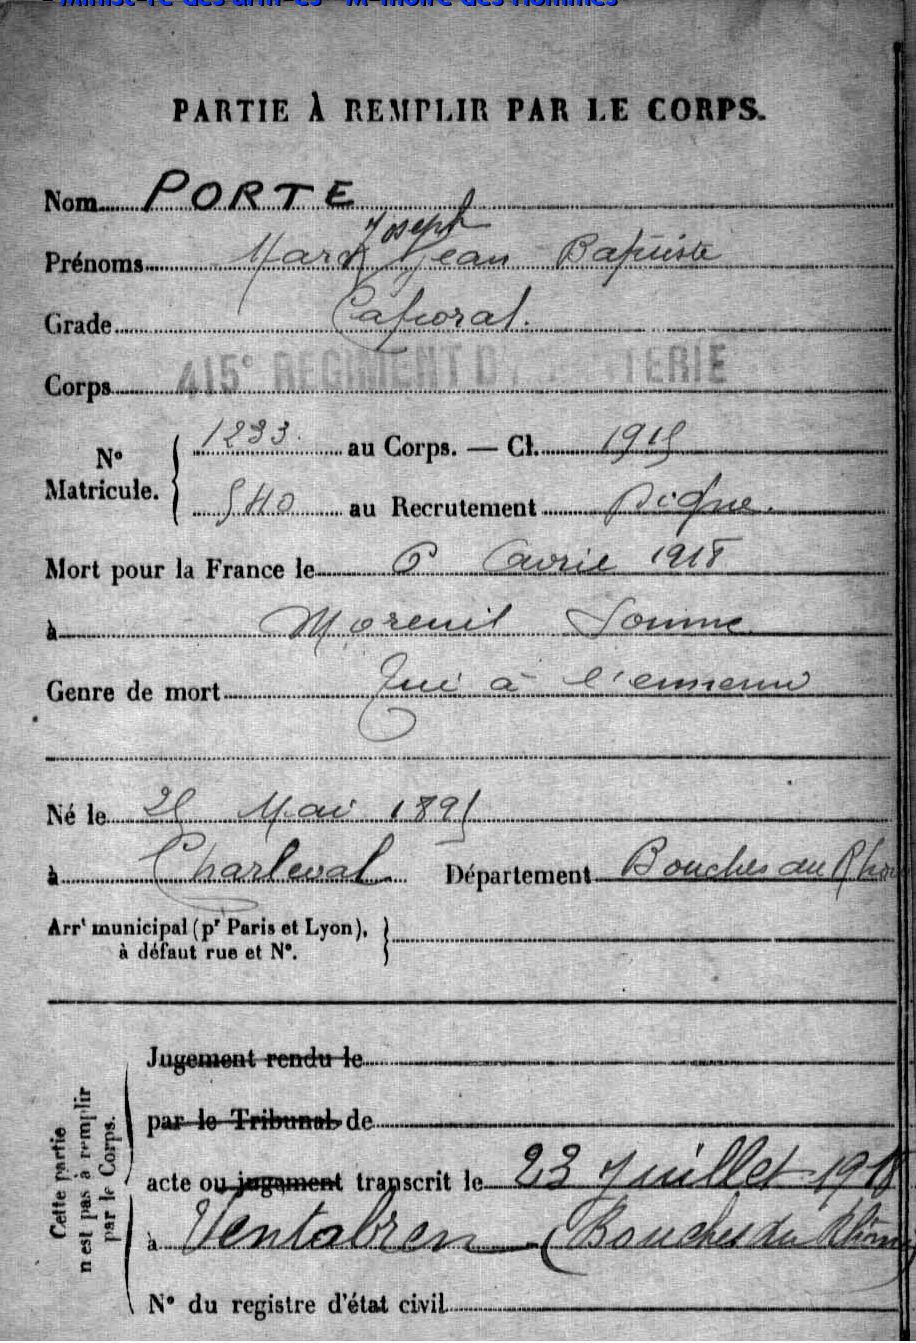 Ministère des armées - Mémoire des Hommes
PARTIE À REMPLIR PAR LE CORPS.
Nom PORTE
Joseph
Prénoms Marc Jean Baptiste
Grade Caporal.
Corps 415e REGIMENT D' TERIE
No Matricule. 1233. au Corps. — Cl. 1915
540 au Recrutement Digne.
Mort pour la France le 6 Avril 1918
à Moreuil Somme
Genre de mort Tué à l'ennemi
Né le 25 Mai 1895
à Charleval Département Bouches du Rhône
Arrt municipal (pr Paris et Lyon),
à défaut rue et No.
Cette partie
n'est pas à remplir
par le Corps.
Jugement rendu le
par le Tribunal de
acte ou jugement transcrit le 23 Juillet 1918
à Ventabren (Bouches du Rhône)
No du registre d'état civil